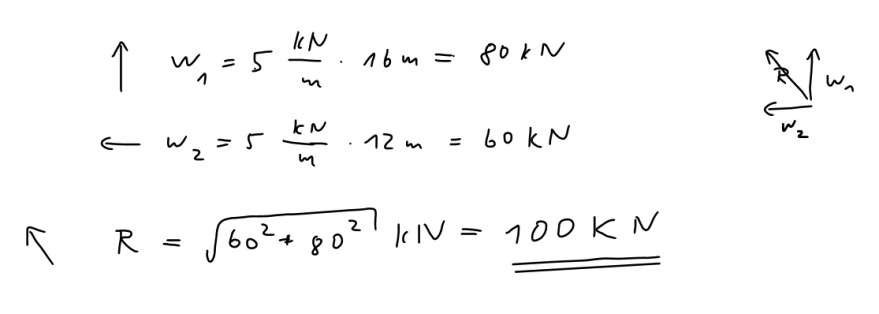 ↑ W₁ = 5 kN/m · 16 m = 80 kN
← W₂ = 5 kN/m · 12 m = 60 kN
↖ R = √(60² + 80²) kN = 100 KN
R W₁
W₂